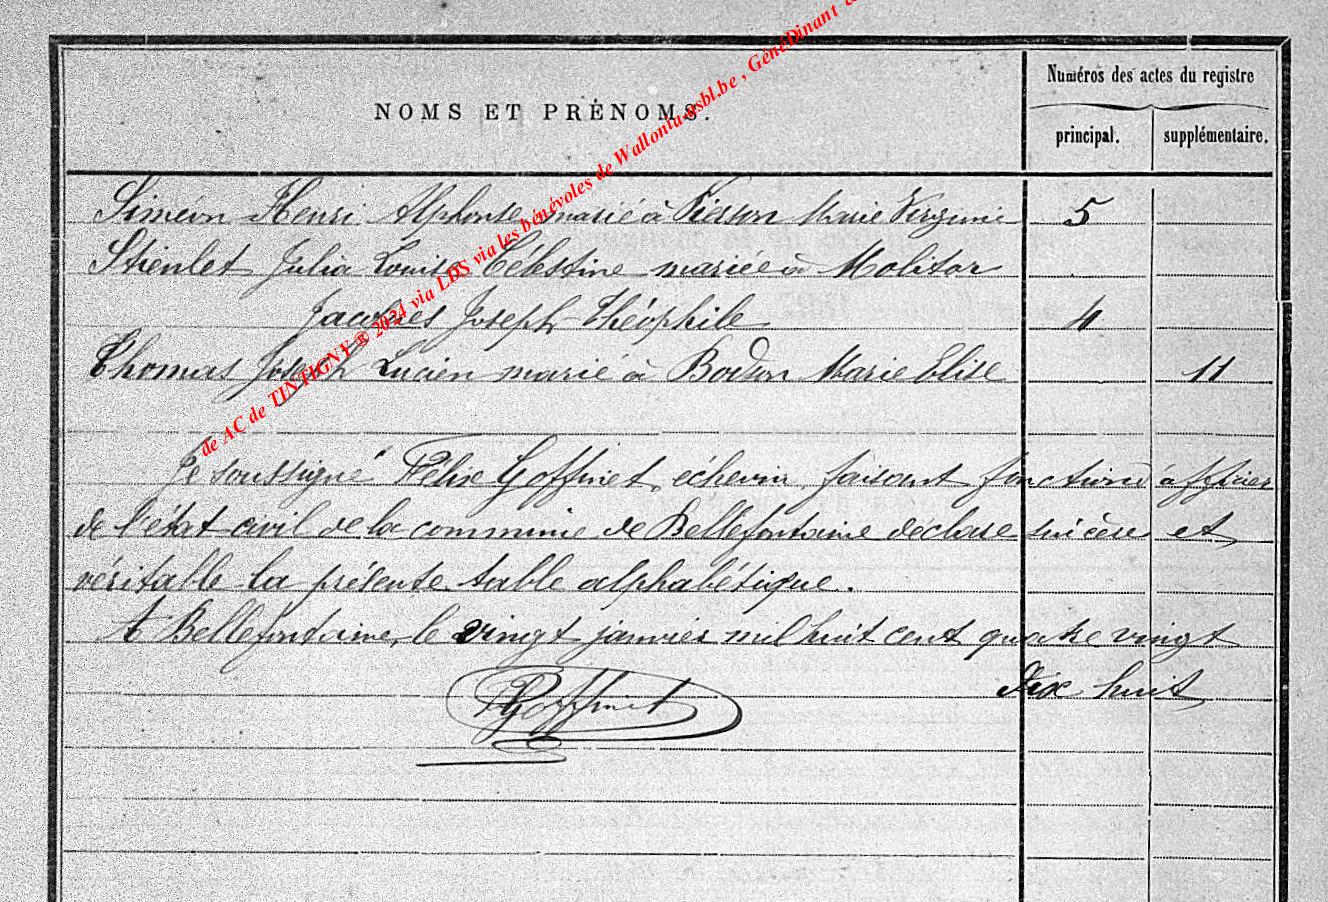 Numéros des actes du registre
NOMS ET PRÉNOMS.
principal. supplémentaire.
Siméon Henri Alphonse marié à Pierson Marie Virginie 5
Stienlet Julia Louise Célestine mariée à Molitor
Jacques Joseph Théophile 4
Thomas Joseph Lucien marié à Bodson Marie Elise 11
Je soussigné Félix Goffinet, échevin, faisant fonctions d'officier
de l'état civil de la commune de Bellefontaine déclare sincère et
véritable la présente table alphabétique.
A Bellefontaine, le vingt janvier mil huit cent quatre vingt
dix huit
FGoffinet
de AC de TINTIGNY ® 2024 via LDS via les bénévoles de Wallonia-asbl.be , GénéDinant